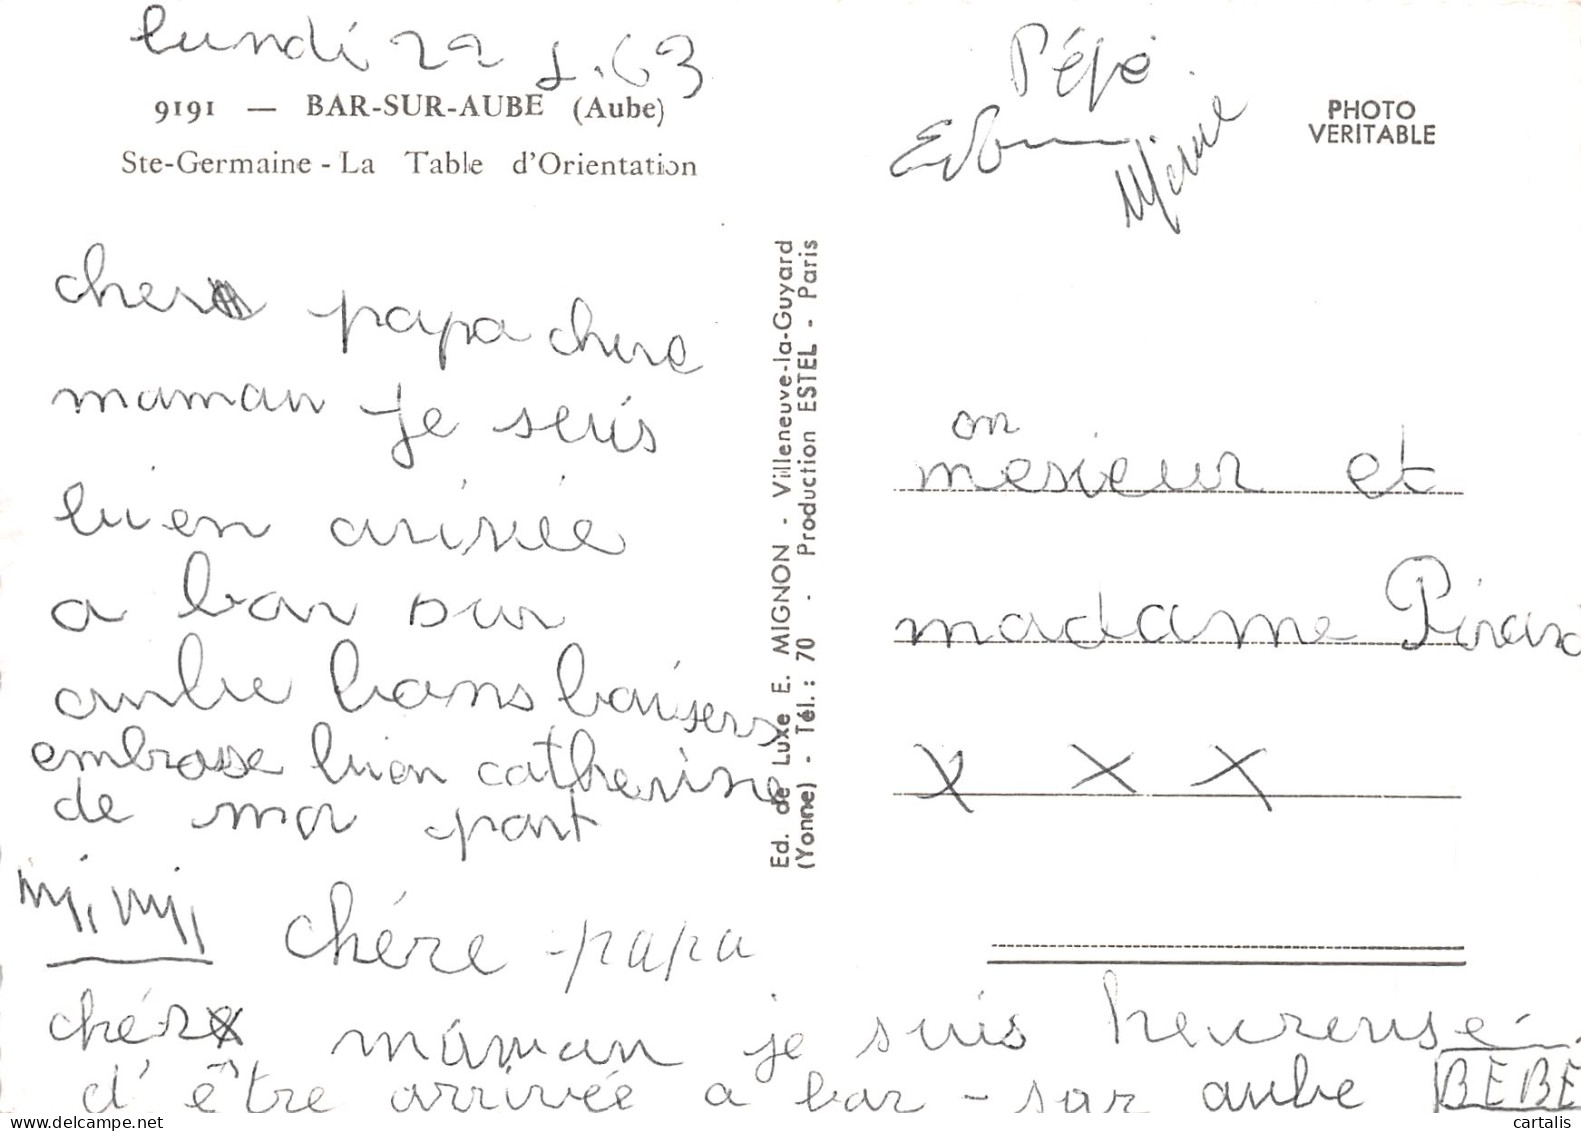 lundi 22 63
9191 — BAR-SUR-AUBE (Aube)
Ste-Germaine - La Table d'Orientation
cher papa chere
maman je suis
bien arivée
a bar sur
aube bons baisers
embrasse bien catherine
de ma part
mimi
chére papa
chére maman je suis heureuse
d'être arrivée a bar - sur aube BEBE
Ed. de Luxe E. MIGNON - Villeneuve-la-Guyard
(Yonne) - Tél. : 70 - Production ESTEL - Paris
Pépé
PHOTO
VERITABLE
on
mesieur et
madame Pirard
x x x
www.delcampe.net
cartalis